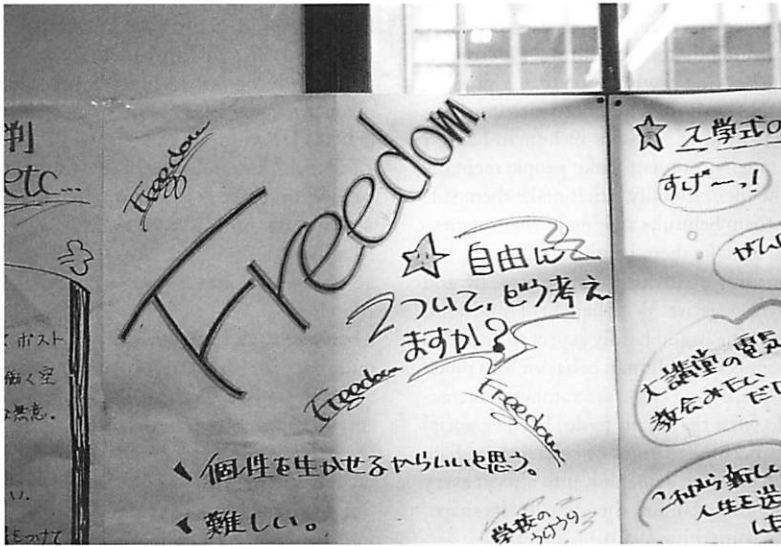 判
etc...
ポスト
働く空
い。
をつけて
Freedom
Freedom
☆ 自由に
ついて、どう考え
ますか?
Freedom
Freedom
、個性を生かせるからいいと思う。
、難しい。
学校の
☆ 入学式の
すげ〜っ!
ぜん
大講堂の電気
教会みたい、
だ
これから新し
人生を送
し